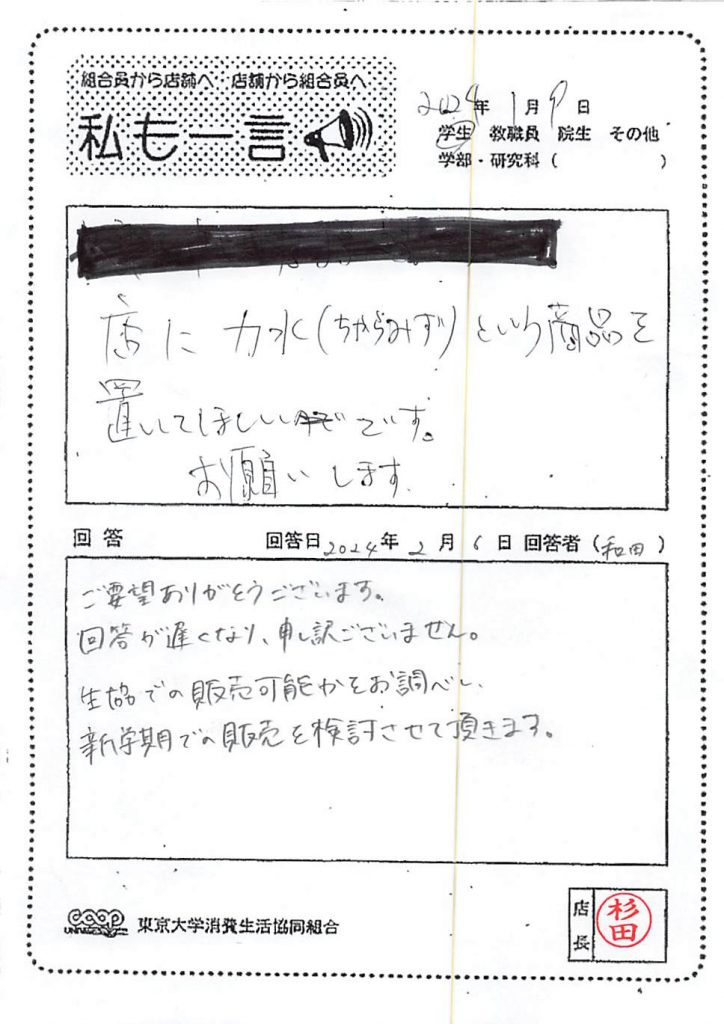 組合員から店舗へ 店舗から組合員へ
私も一言
2024年 1月 9日
学生 教職員 院生 その他
学部・研究科( )
店に 力水(ちからみず)という商品を
置いてほしいです。
お願いします
回答 回答日2024年 2月 6日 回答者(和田)
ご要望ありがとうございます。
回答が遅くなり、申し訳ございません。
生協での販売可能かをお調べし、
新学期での販売を検討させて頂きます。
coop 東京大学消費生活協同組合
店長 杉田